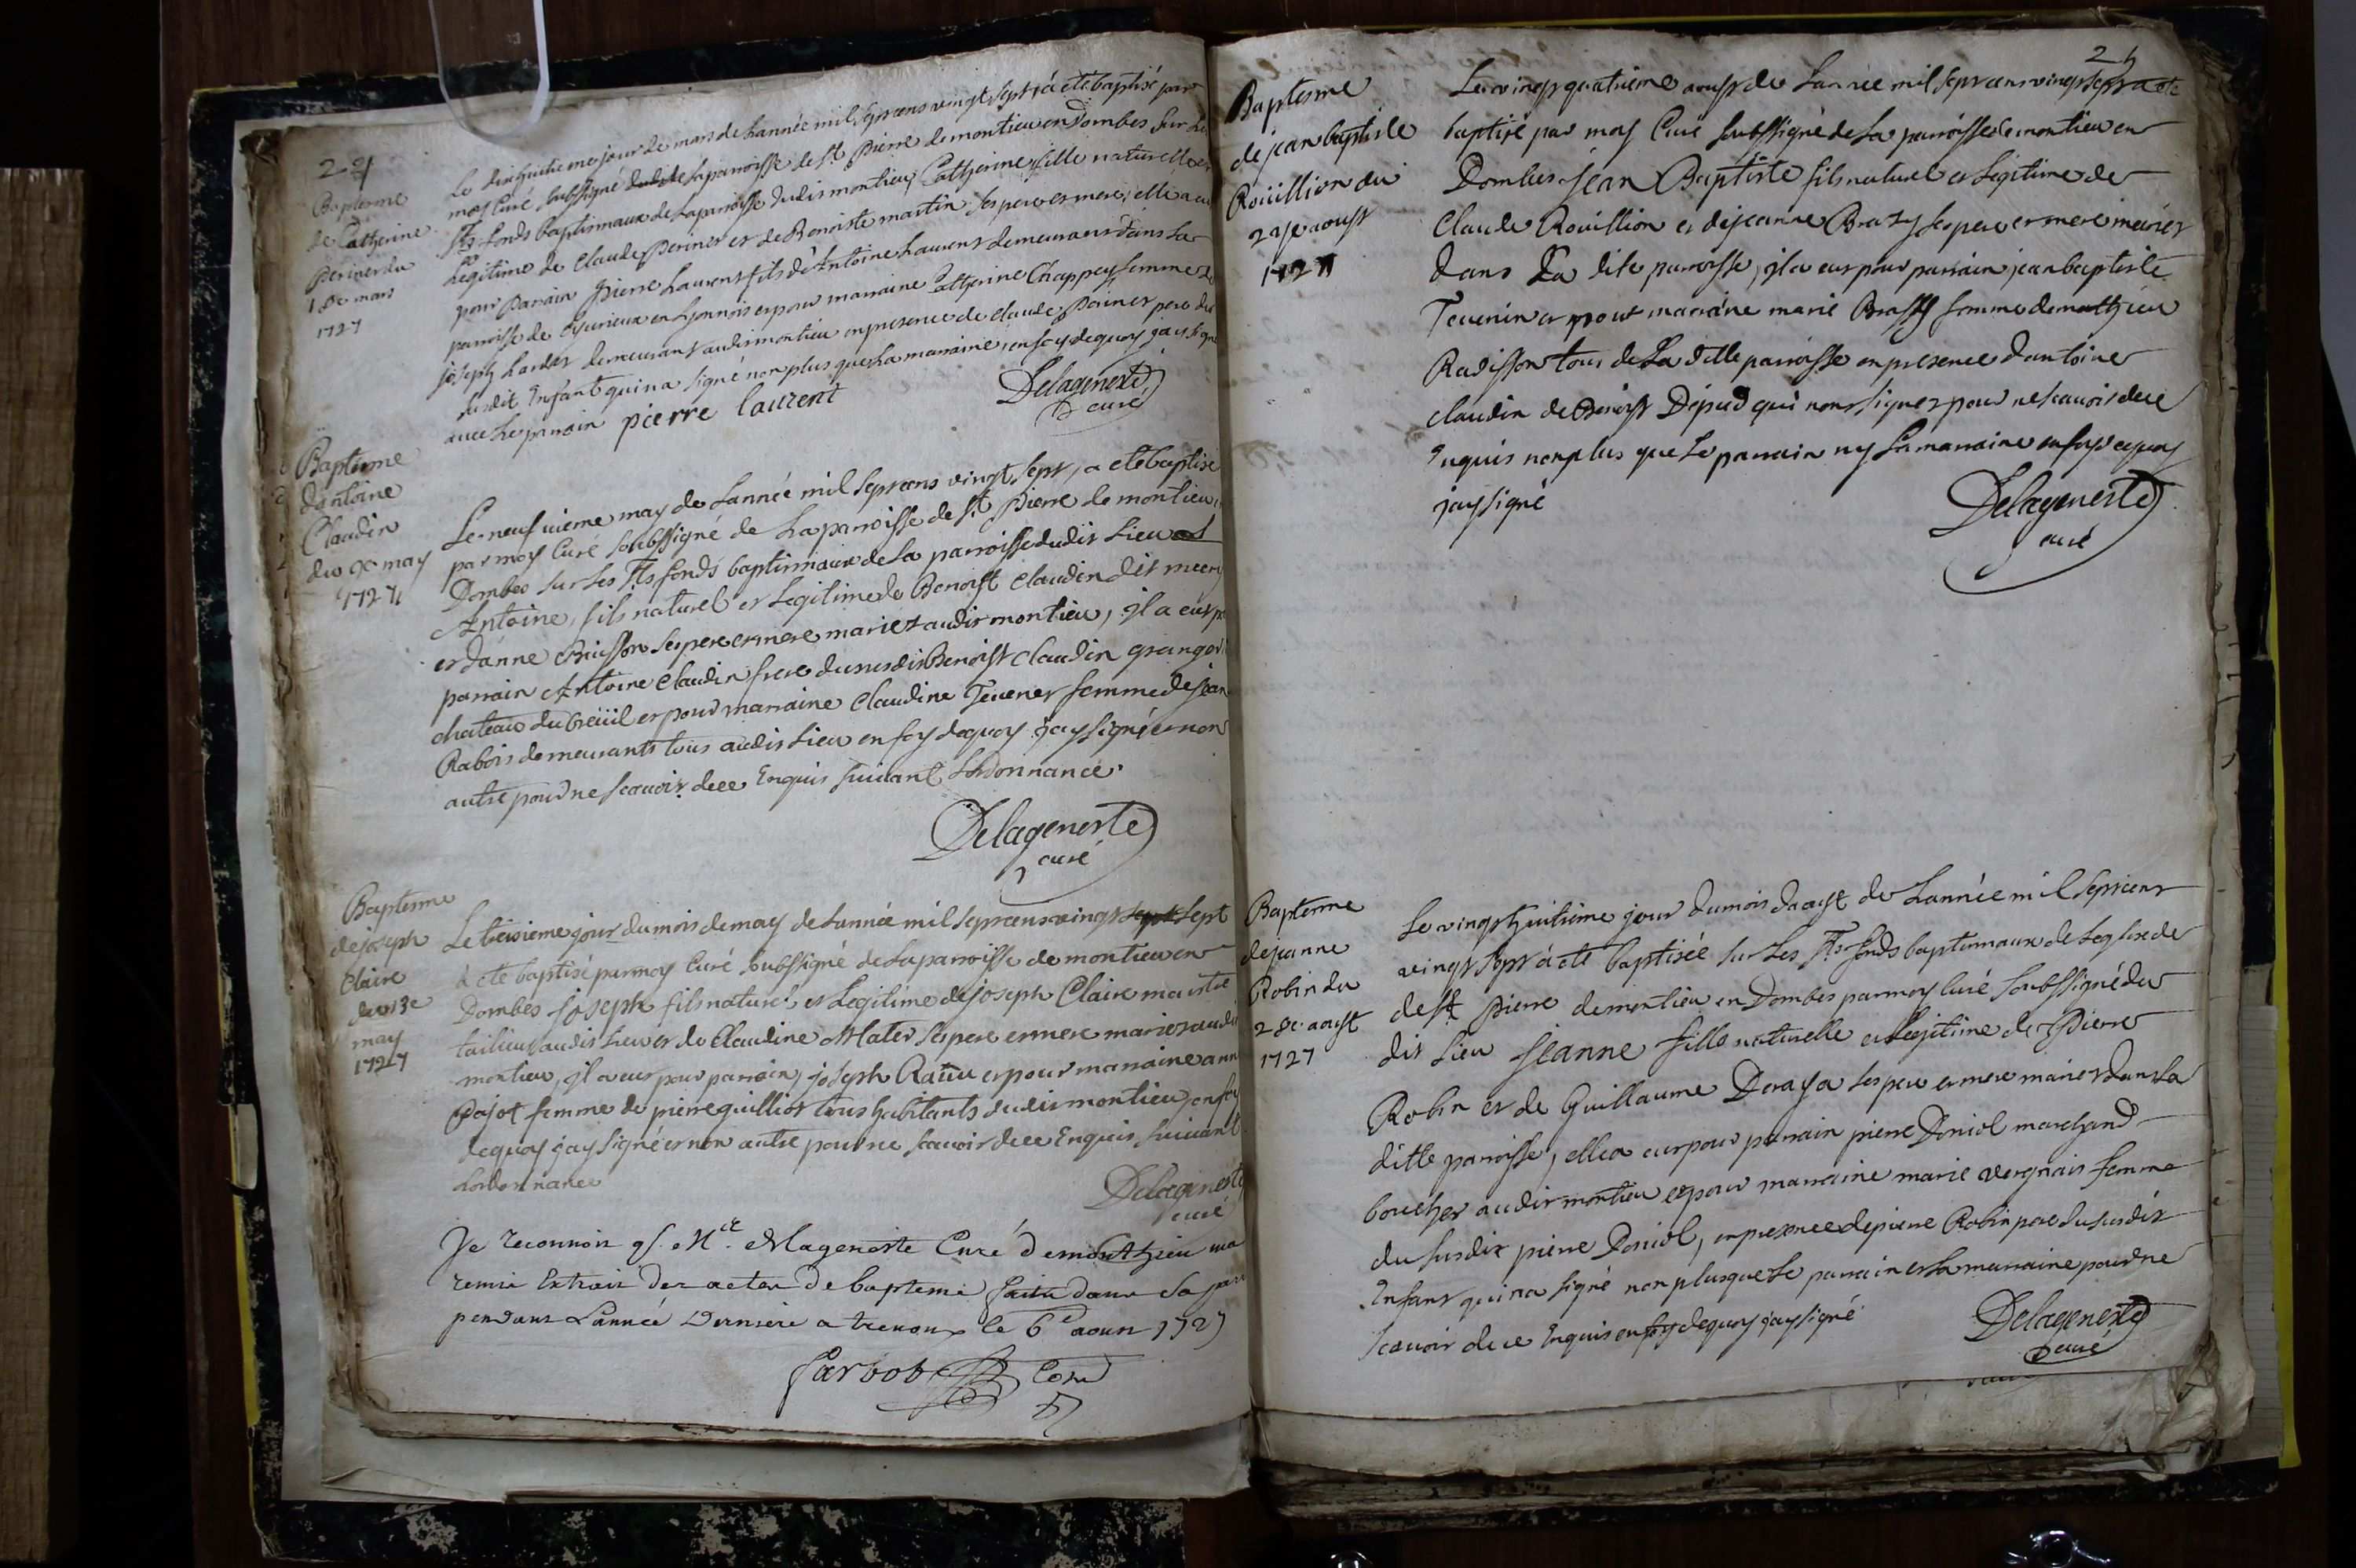 24
Baptesme
de Catherine
Perinet du
18e mars
1727
Le dixhuitieme jour de mars de Lannée mil sept cens vingt sept, a eté baptisé par
moy Curé soubssigné de la parroisse de st Pierre de montieu en Dombes sur les
sts fonds baptismaux de la parroisse dudit montieu Catherine fille naturelle et
Legitime de Claude Perinet et de Benoiste martin ses pere et mere, elle a eu
pour parrain Pierre Laurent fils d'Antoine Laurent demeurans dans la
parroisse de en Lyonnois et pour marraine Catherine Chappuy femme de
joseph Lardet demeurant audit montieu en presence de Claude Perinet pere du
susdit Enfant qui na signé non plus que la marraine, en foy dequoy jay signé
avec le parrain pierre laurent
Delageneste
curé
Baptesme
dantoine
Claudin
du 9e may
1727
Le neufvieme may de Lannée mil sept cens vingt sept, a eté baptisé
par moy Curé soubssigné de la parroisse de st Pierre de montieu en
Dombes sur les sts fonds baptismaux de la parroisse dudit Lieu
Antoine, fils naturel et Legitime de Benoist Claudin dit
et danne Buisson ses pere et mere mariez audit montieu, jl a eu pr
parrain Antoine Claudin frere du susdit Benoist Claudin granger
chateau du Breüil et pour marraine Claudine Tevenet femme de jean
Rabois demeurants tous audit Lieu en foy dequoy jay signé et non
autre pour ne scavoir de ce Enquis suivant Lordonnance.
Delageneste
curé
Baptesme
de joseph
Claire
du 13e
may
1727
Le treisieme jour du mois de may de Lannée mil sept cens vingt sept sept
a eté baptisé par moy Curé soubssigné de la parroisse de montieu en
Dombes joseph fils naturel et Legitime de joseph Claire maistre
tailieur audit Lieu et de Claudine Mater ses pere et mere mariez audit
montieu, jl a eu pour parrain, joseph Ratiu et pour marraine anne
Pajot femme de pierre guilliot tous habitants dudit montieu, en foy
dequoy jay signé et non autre pour ne scavoir de ce Enquis suivant
Lordonnance
Delageneste
curé
Je reconnois q. Mre. Mageneste Curé de monthieu ma
remis Extrait des actes de bapteme faits dans sa parr
pendant Lannée Derniere a trevoux le 6e aoust 1727
Jarbot
25
Baptesme
de jean baptiste
Roüillion du
24e aoust
1727
Le vingt quatrieme aoust de Lannée mil sept cens vingt sept a eté
baptisé par moy Curé soubssigné de la parroisse de montieu en
Dombes Jean Baptiste fils naturel et Legitime de
Claude Rouillion et de jeanne Brazy ses pere et mere mariez
dans La dite parroisse, jl a eu pour parrain jean baptiste
Tevenin et pour marraine marie Brassy femme de mathieu
Radisson tous de La ditte parroisse en presence dantoine
claudin de Benoist Depud qui nont signez pour ne scavoir de ce
Enquis non plus que Le parrain ny La marraine en foy dequoy
jay signé
Delageneste
curé
Baptesme
de jeanne
Robin du
28e aoust
1727
Le vingt huitieme jour du mois daoust de Lannée mil sept cent
vingt sept a eté baptisée sur Les sts fonds baptismaux de Leglise de
de st Pierre de montieu en Dombes par moy Curé soubssigné du
dit Lieu Jeanne fille naturelle et Legitime de Pierre
Robin et de Guillaume Deraya ses pere et mere mariez dans La
ditte parroisse, elle a eu pour parrain pierre Doniol marchand
boucher audit montieu et pour marraine marie vergnais femme
du susdit pierre Doniol, en presence de pierre Robin pere du susdit
Enfant qui na signé non plus que Le parrain et La marraine pour ne
scavoir de ce Enquis en foy dequoy jay signé
Delageneste
curé